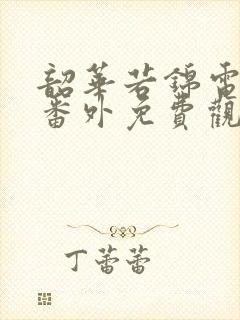 韶華若錦電
番外免費觀
丁蕾蕾